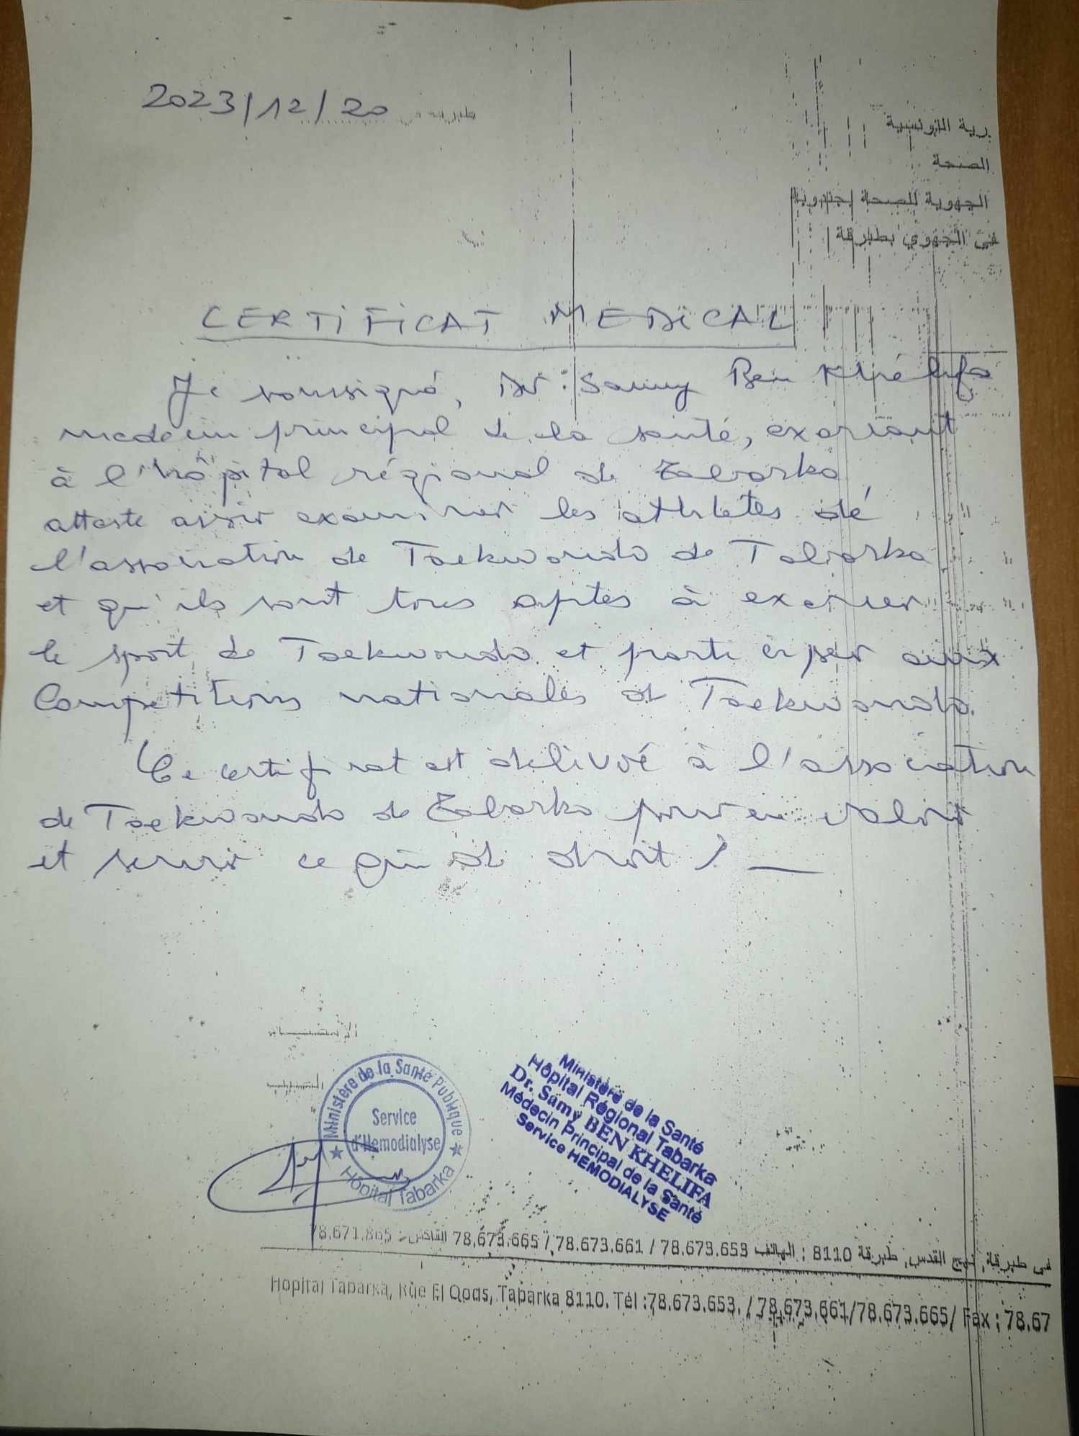 2023/12/20 طبرقة في
رية التونسية
الصحة
الجهوية للصحة بجندوبة
فى الجهوي بطبرقة
CERTIFICAT MEDICAL
Je soussigné, Dr : Samy Ben Khélifa
medecin principal de la santé, exerçant
à l'hôpital régional de Tabarka
atteste avoir examiner les athlètes de
l'association de Taekwondo de Tabarka
et qu'ils sont tous aptes à exercer
le sport de Taekwondo et participer aux
Compétitions nationales de Taekwondo.
Ce certificat est délivré à l'association
de Taekwondo de Tabarka pour en valoir
et servir ce qui de droit /
Ministère de la Santé Publique
Service
d'Hemodialyse
Hôpital Tabarka
Ministère de la Santé
Hôpital Régional Tabarka
Dr. Samy BEN KHELIFA
Médecin Principal de la Santé
Service HEMODIALYSE
فى طبرقة, نهج القدس, طبرقة 8110 : الهاتف 78.673.653 / 78.673.661 / 78.673.665 الفاكس 78.671.865
Hopital Tabarka, Rue El Qods, Tabarka 8110. Tél :78.673.653. / 78.673.661/78.673.665/ Fax : 78.67